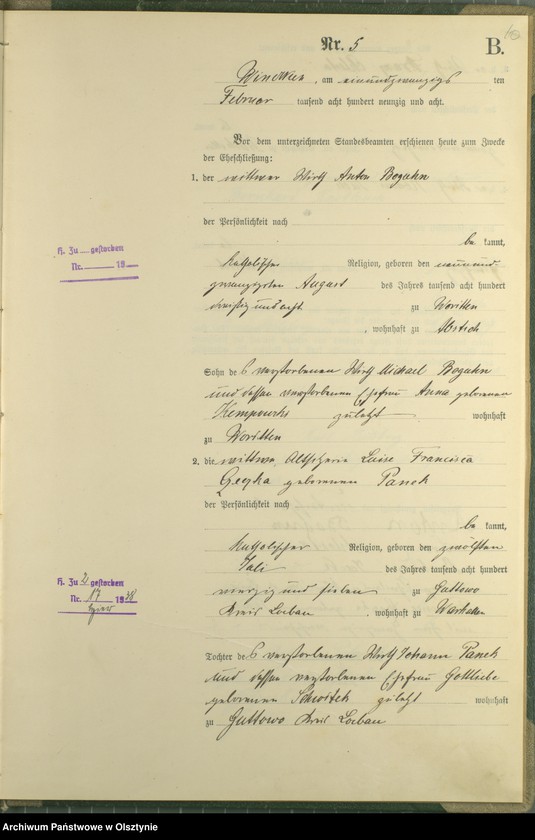 Nr. 5
B.
am einundzwanzigs ten
Februar tausend acht hundert neunzig und acht.
Vor dem unterzeichneten Standesbeamten erschienen heute zum Zwecke
der Eheschließung:
1. der wittwer Wirth Anton Boguhn
der Persönlichkeit nach
be kannt,
katholischer Religion, geboren den neunund
zwanzigsten August des Jahres tausend acht hundert
dreißig und acht zu Woritten
, wohnhaft zu
Sohn des verstorbenen Wirth Michael Boguhn
und dessen verstorbenen Ehefrau Anna geborenen
zuletzt wohnhaft
zu Woritten
2. die wittwe Luise Francisca
geborenen Panek
der Persönlichkeit nach
be kannt,
katholischer Religion, geboren den zwölften
Juli des Jahres tausend acht hundert
vierzig und sieben zu Guttowo
Kreis Loebau , wohnhaft zu
Tochter des verstorbenen Wirth Johann Panek
und dessen verstorbenen Ehefrau Gottliebe
geborenen zuletzt wohnhaft
zu Guttowo Kreis Loebau
H. Zu gestorben
Nr. 19
H. Zu 2 gestorben
Nr. 17 1938
Archiwum Państwowe w Olsztynie